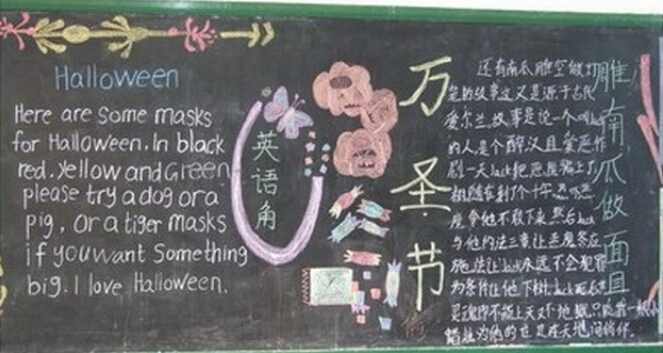 Halloween
Here are some masks
for Halloween. In black
red. Yellow and Green
please try a dog or a
pig, or a tiger masks
if you want Something
big. I love Halloween.
英语角
万圣节
还有南瓜雕空做灯
的故事这又是源于古代
爱尔兰故事是说一个
的人是个醉汉且爱恶作
刷一天Jack把恶魔骗上了
树随在刻了个十字
魔拿他不敢下来然后Jack
与他约法三章让恶魔答应
施法让Jack永远不会犯罪
为条件让他下树Jack死后
灵魂即不能上天又不地狱只能靠一根小
蜡烛为他的在天地间
雕南瓜做面具